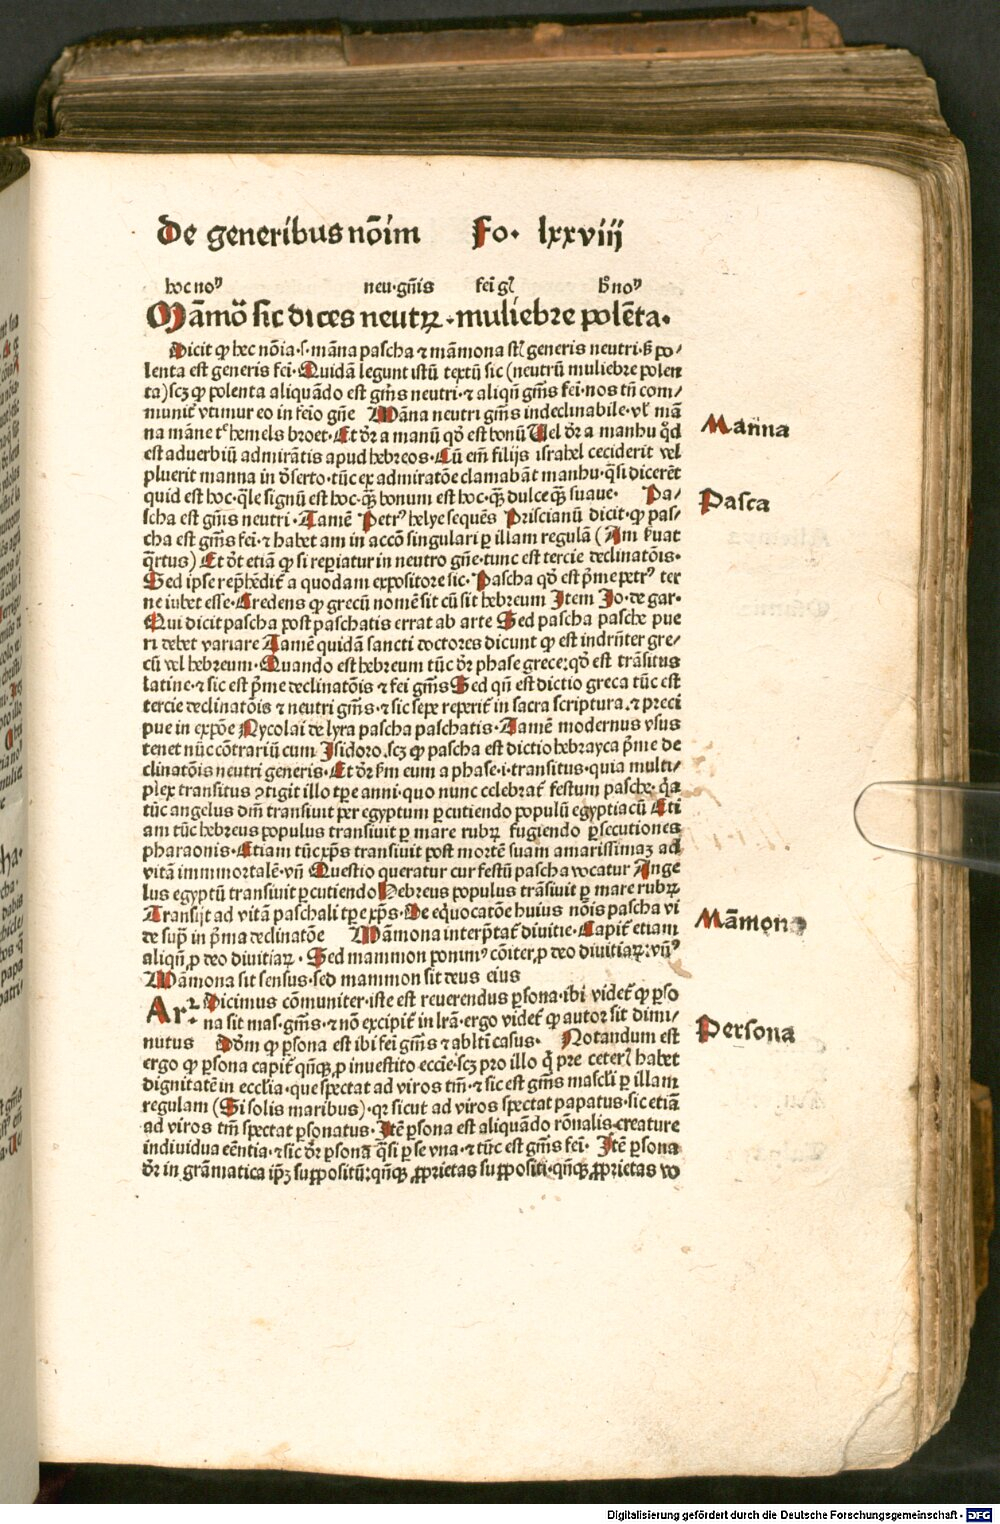 De generibus nōim Fo. lxxviij
hoc noꝰ neu·gn̄is fei gl̓ h̓ noꝰ
Māmō sic dices neutꝝ · muliebre polēta·
Dicit ꝙ hec nōia·s·māna pascha ⁊ māmona st̄ generis neutri·ß po/
lenta est generis fei·Quidā legunt istū textū sic (neutrū muliebre polen
ta)scꝫ ꝙ polenta aliquādo est gn̄is neutri·⁊ aliqn̄ gn̄is fei·nos tn̄ com/
munit̓ vtimur eo in feīo gn̄e Māna neutri gn̄is indeclinabile·vl̓ mā
na māne t᷒ hemels broet·Et dr̄ a manū qd̓ est bonū Uel dr̄ a manhu qd̓
est aduerbiū admirātis apud hebreos·Cū em̄ filijs israhel ceciderit vel
pluerit manna in d̓serto·tūc ex admiratōe clamabāt manhu·q̄si dicerēt
quid est hoc·q̄le signū est hoc·q̄ꝫ bonum est hoc·q̄ꝫ dulce q̄ꝫ suaue· Pa/
scha est gn̄is neutri·Tamē Petrꝰ helye sequēs Priscianū dicit·ꝙ pas/
cha est gn̄is fei·⁊ habet am in accō singulari ꝑ illam regulā (Am ẜuat
q̄rtus) Et dt̓ etiā ꝙ si reꝑiatur in neutro gn̄e·tunc est tercie declinatōis·
Sed ipse rep̄hēdit̓ a quodam expositore sic·Pascha qd̓ est p̄me petrꝰ ter
ne iubet esse·Credens ꝙ grecū nomē sit cū sit hebreum Item Jo·de gar·
Qui dicit pascha post paschatis errat ab arte Sed pascha pasche pue
ri debet variare Tamē quidā sancti doctores dicunt ꝙ est indrn̄ter gre/
cū vel hebreum·Quando est hebreum tūc dr̄ phase grece:qd̓ est trāsitus
latine·⁊ sic est p̄me declinatōis ⁊ fei gn̄is Sed qn̄ est dictio greca tūc est
tercie declinatōis ⁊ neutri gn̄is·⁊ sic sepe reperit̓ in sacra scriptura·⁊ preci
pue in expōe Nycolai de lyra pascha paschatis·Tamē modernus vsus
tenet nūc cōtrariū cum Isidoro·scꝫ ꝙ pascha est dictio hebrayca p̄me de
clinatōis neutri generis·Et dr̄ ẜm eum a phase·i·transitus·quia multi/
plex transitus ꝯtigit illo tꝑe anni·quo nunc celebrat̓ festum pasche·q̄a
tūc angelus dn̄i transiuit per egyptum ꝑcutiendo populū egyptiacū Eti
am tūc hebreus populus transiuit ꝑ mare rubꝝ fugiendo ꝑsecutiones
pharaonis·Etiam tūc xp̄s transiuit post mortē suam amarissimaꝫ ad
vitā immmortalē·vn̄ Questio queratur cur festū pascha vocatur Ange
lus egyptū transiuit ꝑcutiendo Hebreus populus trāsiuit ꝑ mare rubꝝ
Transijt ad vitā paschali tꝑe xp̄s·De equocatōe huius nōis pascha vi
de sup̄ in p̄ma declinatōe Māmona interp̄tat̓ diuitie·Capit̓ etiam
aliqn̄ ꝓ deo diuitiaꝝ·Sed mammon ponimꝰ cōiter ꝓ deo diuitiaꝝ:vn̄ꝰ
Māmona sit sensus·sed mammon sit deus eius
Arꝛ· Dicimus cōmuniter·iste est reuerendus ꝑsona·ibi videt̓ ꝙ ꝑso
na sit mas·gn̄is·⁊ nō excipit̓ in lr̄a·ergo videt̓ ꝙ autor sit dimi/
nutus Dōm ꝙ ꝑsona est ibi fei gn̄is ⁊ ablti casus· Notandum est
ergo ꝙ ꝑsona capit̓ qn̄qꝫ ꝓ inuestito eccie·scꝫ pro illo q̓ pre ceteꝛ̓ habet
dignitatē in ecclia·que spectat ad viros tm̄·⁊ sic est gn̄is mascli ꝑ illam
regulam (Si solis maribus)·qꝛ sicut ad viros spectat papatus·sic etiā
ad viros tm̄ spectat ꝑsonatus·Itē ꝑsona est aliquādo rōnalis creature
indiuidua eēntia·⁊ sic dr̄ ꝑsona q̄si ꝑ se vna·⁊ tūc est gn̄is fei· Itē ꝑsona
dr̄ in grāmatica ip̄ꝫ suꝓpositū:qn̄qꝫ ꝓprietas suꝓpositi·qn̄qꝫ ꝓprietas vo
Manna
Pasca
Māmona
Persona
Digitalisierung gefördert durch die Deutsche Forschungsgemeinschaft - DFG